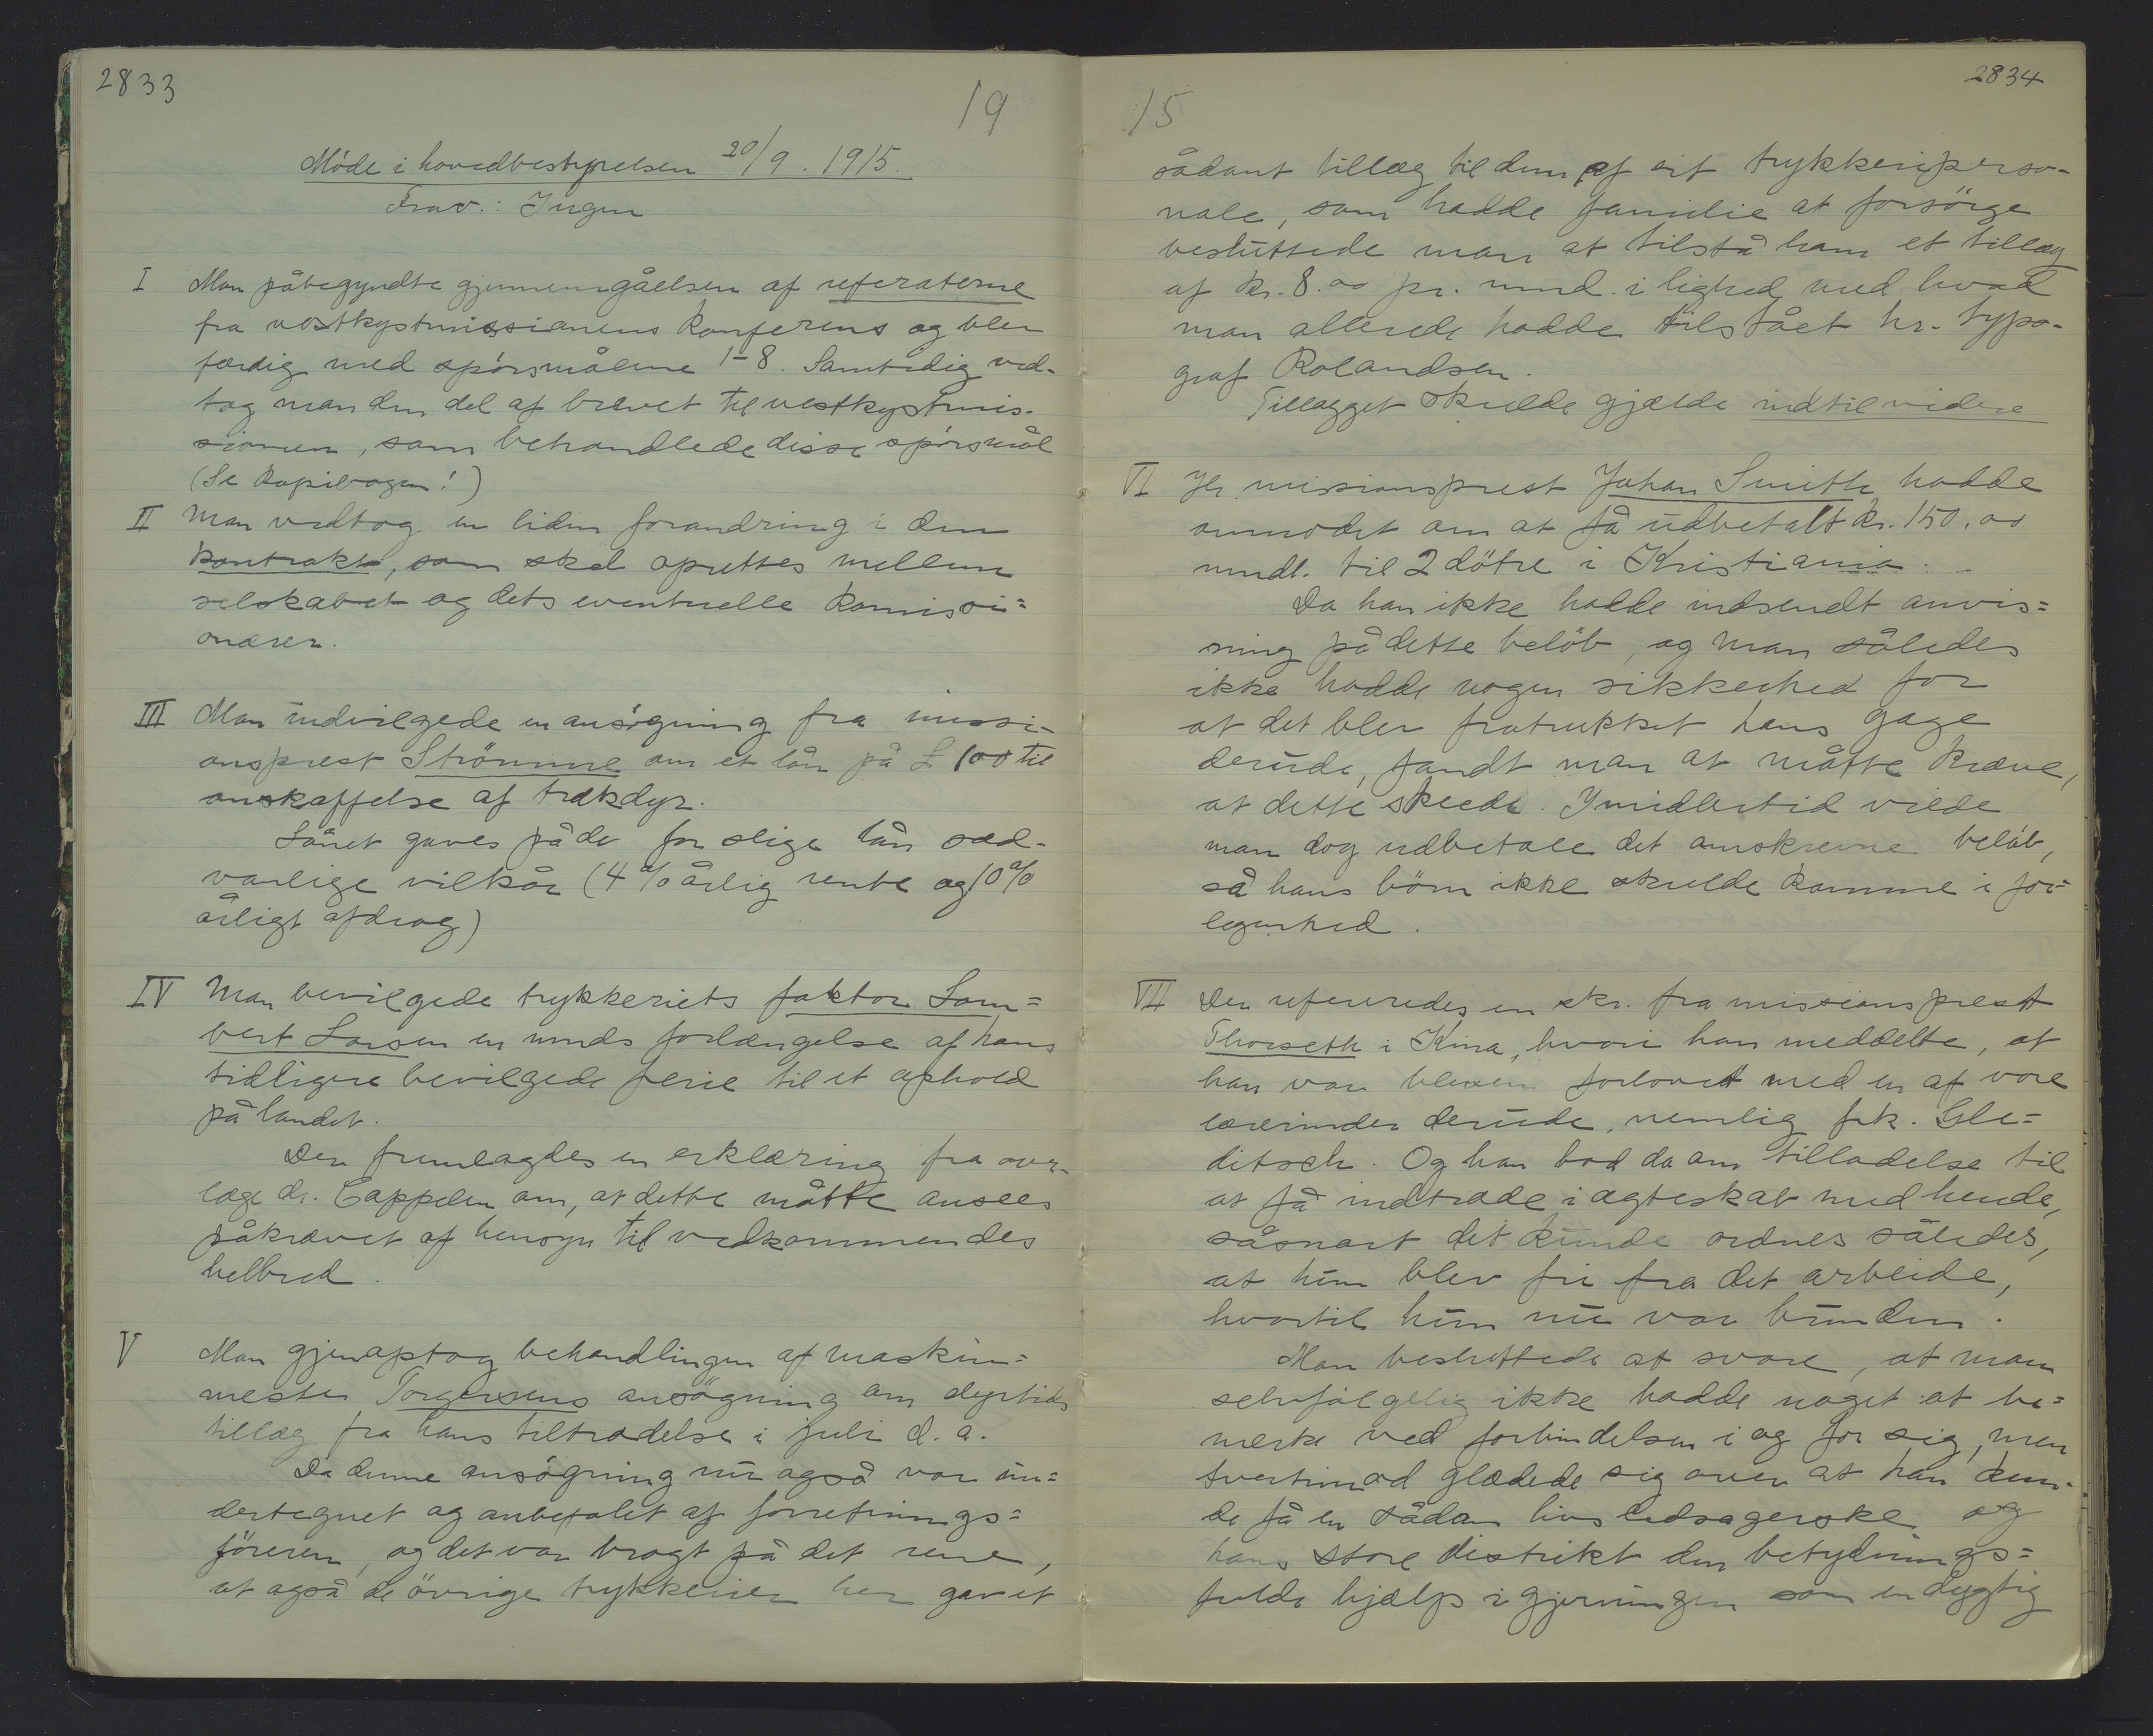 2833
19
Möde i hovedbestyrelsen 20/9. 1915.
Frav.: Ingen
I Man påbegyndte gjennemgåelsen af referaterne
fra vestkystmissionens konferens og blev
færdig med spörsmålene 1-8. Samtidig ved-
tog man den del af brevet til vestkystmis-
sionen, som behandlede disse spörsmål
(Se Kopibogen!)
II Man vedtog en liden forandring i den
kontrakt, som skal oprettes mellem
selskabet og dets eventuelle komissi=
onærer.
III Man indvilgede en ansögning fra missi-
onsprest Strömme om et lån på £ 100 til
anskaffelse af trækdyr.
Lånet gaves på de for slige lån sæd-
vanlige vilkår (4 % årlig rente og 10 %
årligt afdrag)
IV Man bevilgede trykkeriets faktor Lam=
bert Larsen en mnds forlængelse af hans
tidligere bevilgede ferie til et ophold
på landet.
Der fremlagdes en erklæring fra over-
læge dr. Cappelen om, at dette måtte ansees
påkrævet af hensyn til vedkommendes
helbred.
V Man gjenoptog behandlingen af maskin=
mester Torgersens ansögning om dyrtids
tillæg fra hans tiltrædelse i juli d. a.
Da denne ansögning nu også var un=
dertegnet og anbefalet af forretnings=
föreren, og det var bragt på det rene,
at også de övrige trykkerier her gav et
15
2834
sådant tillæg til dem af sit trykkeriperso-
nale, som hadde familie at forsörge
besluttede man at tilstå ham et tillæg
af kr. 8.00 pr. mnd. i lighed med hvad
man allerede hadde tilstået hr. typo-
graf Rolandsen.
Tillægget skulde gjælde indtil videre
VI Hr. missionsprest Johan Smith hadde
anmodet om at få udbetalt kr. 150.00
mndl. til 2 dötre i Kristiania.
Da han ikke hadde indsendt anvis=
ning på dette belöb, og man således
ikke hadde nogen sikkerhed for
at det blev fratrukket hans gage
derude, fandt man at måtte kræve,
at dette skeede. Imidlertid vilde
man dog udbetale det omskrevne belöb,
så hans börn ikke skulde komme i for=
legenhed.
VII Der refereredes en skr. fra missionsprest
Thorseth i Kina, hvori han meddelte, at
han var bleven forlovet med en af vore
lærerinder derude, nemlig frk. Gle=
ditsch. Og han bad da om tilladelse til
at få indtræde i ægteskab med hende,
såsnart det kunde ordnes således,
at hun blev fri fra det arbeide,
hvortil hun nu var bunden.
Man besluttede at svare, at man
selvfölgelig ikke hadde noget at be=
merke ved forbindelsen i og for sig, men
tvertimod glædede sig over at han kun-
de få en sådan livsledsagerske og
hans store distrikt den betydnings=
fulde hjælp i gjerningen som en dygtig